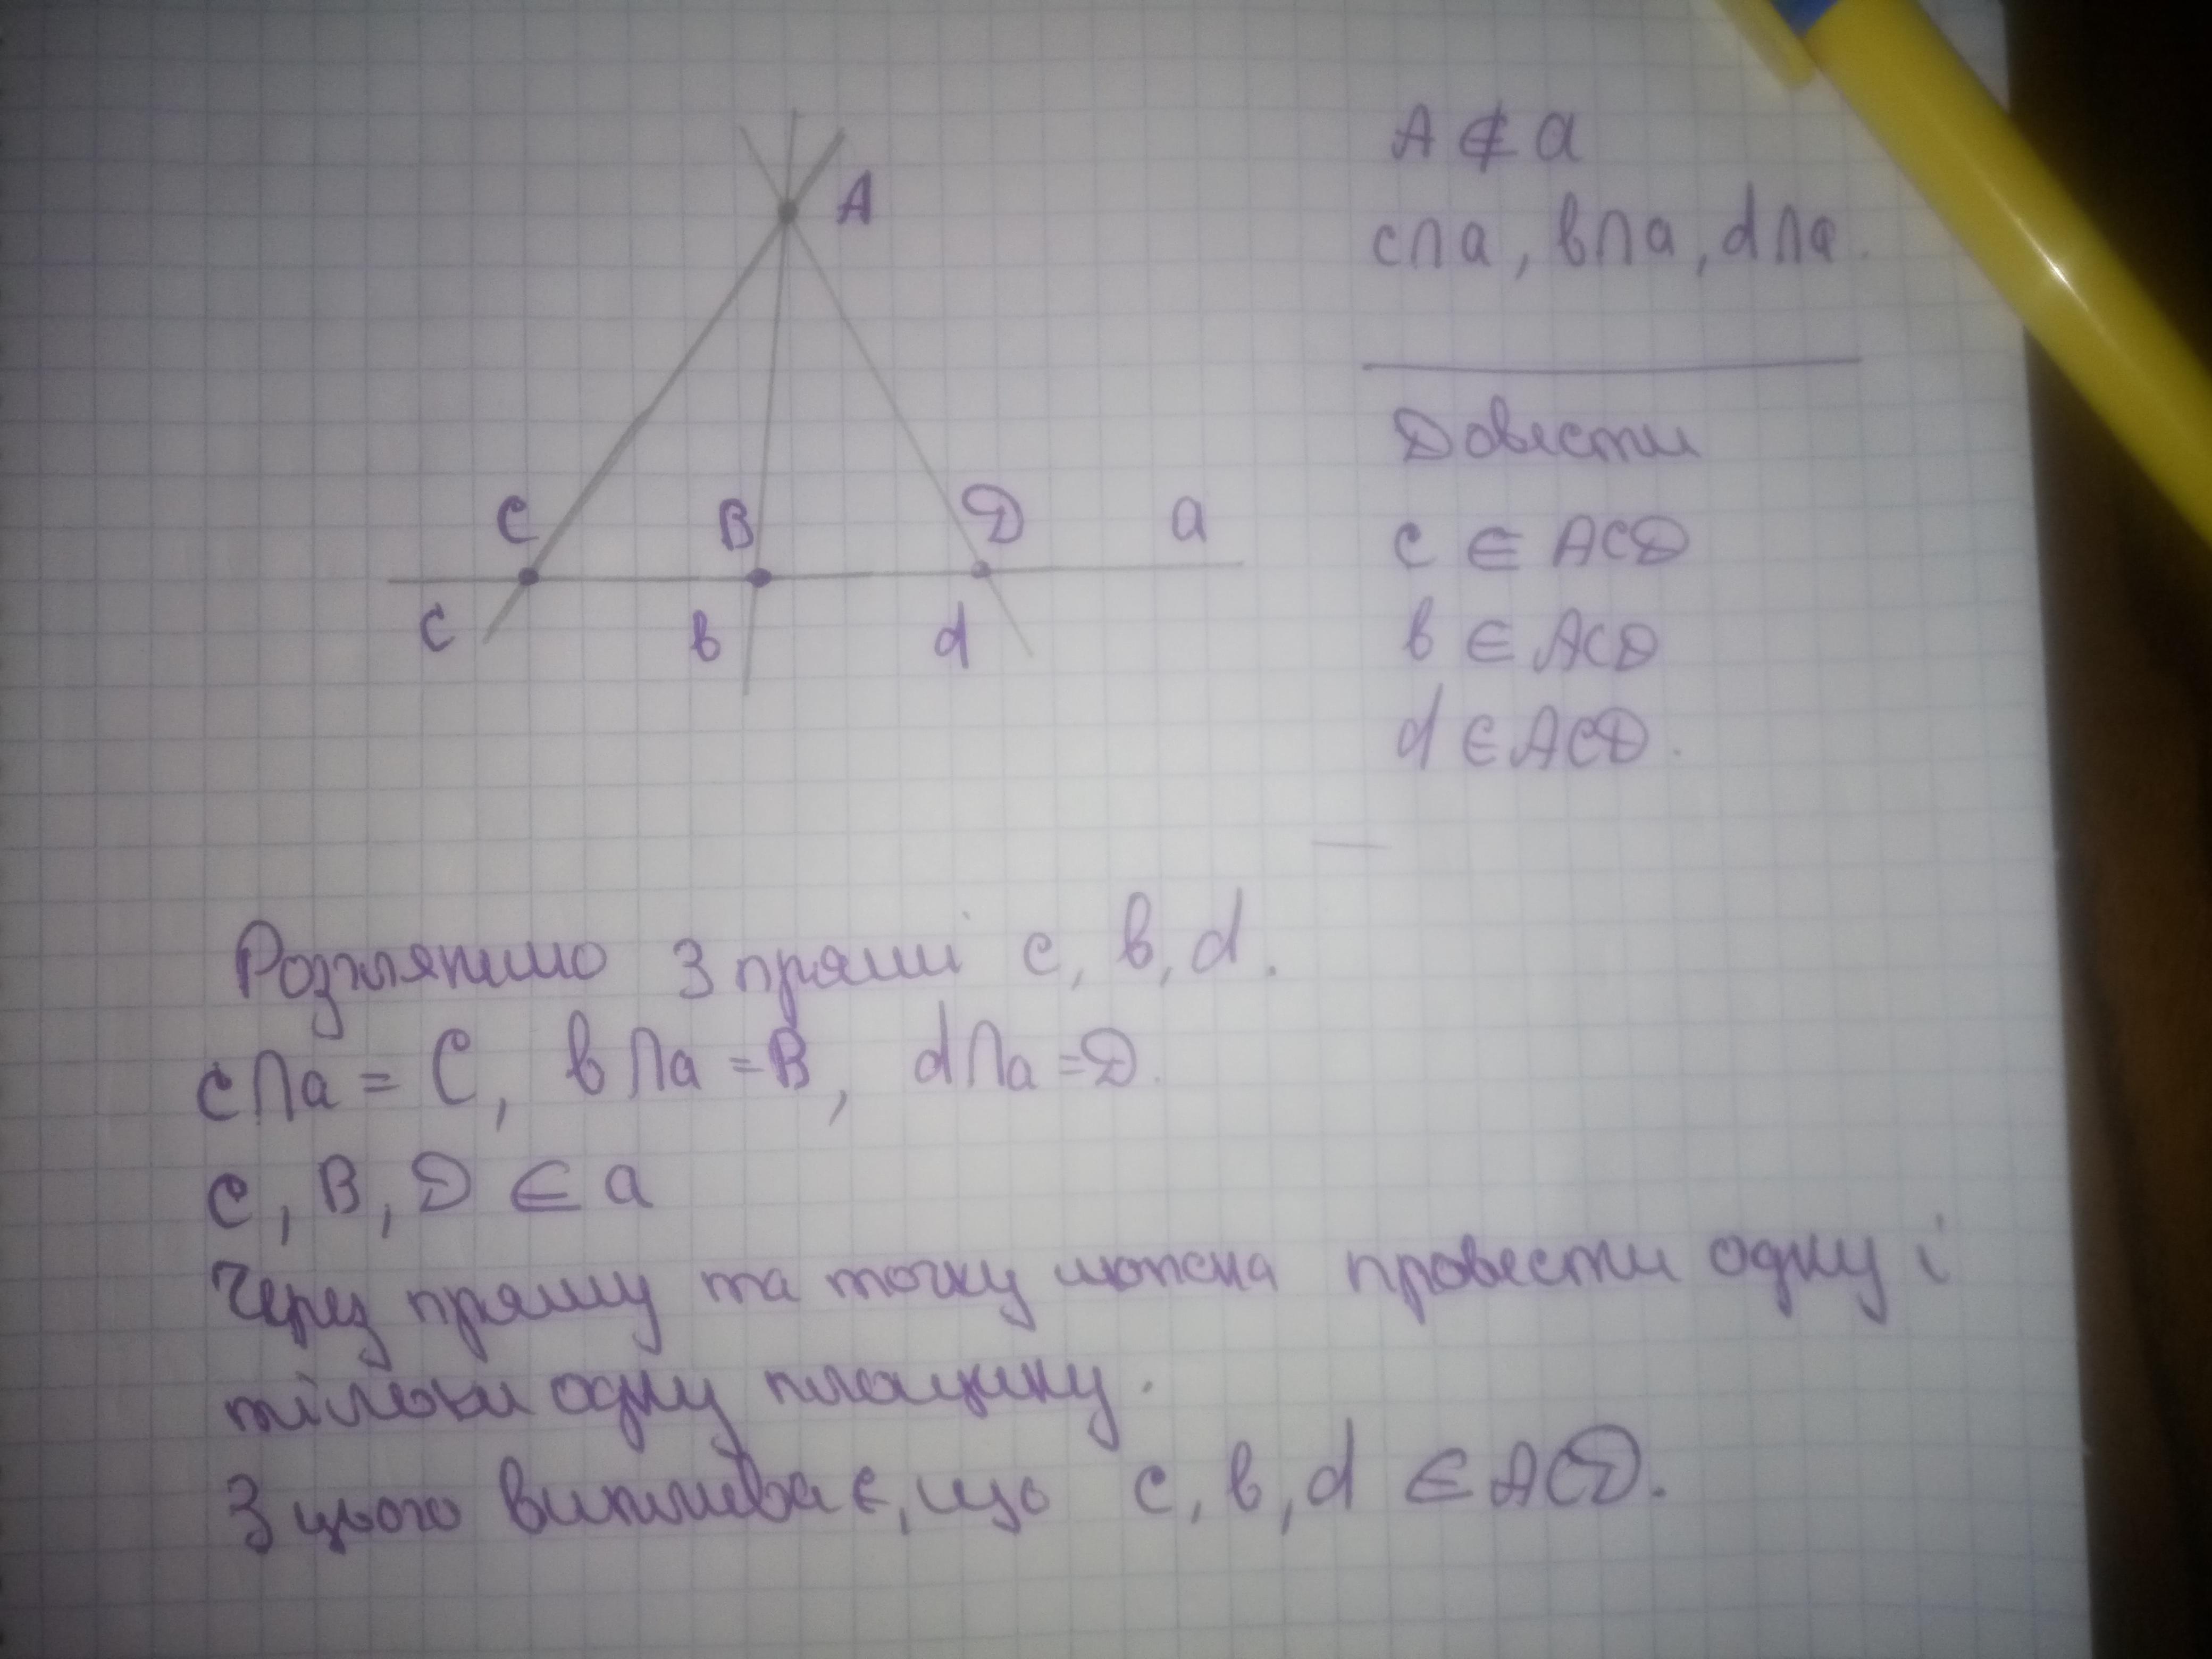 A
C
B
D
a
c
в
d
A ∉ a
c∩a, в∩a, d∩a.
Довести
c ∈ ACD
в ∈ ACD
d ∈ ACD.
Розглянимо 3 прямі c, в, d.
c∩a = C, в∩a = B, d∩a = D.
C, B, D ∈ a
Через пряму та точку можна провести одну і
тільки одну площину.
З цього випливає, що c, в, d ∈ ACD.